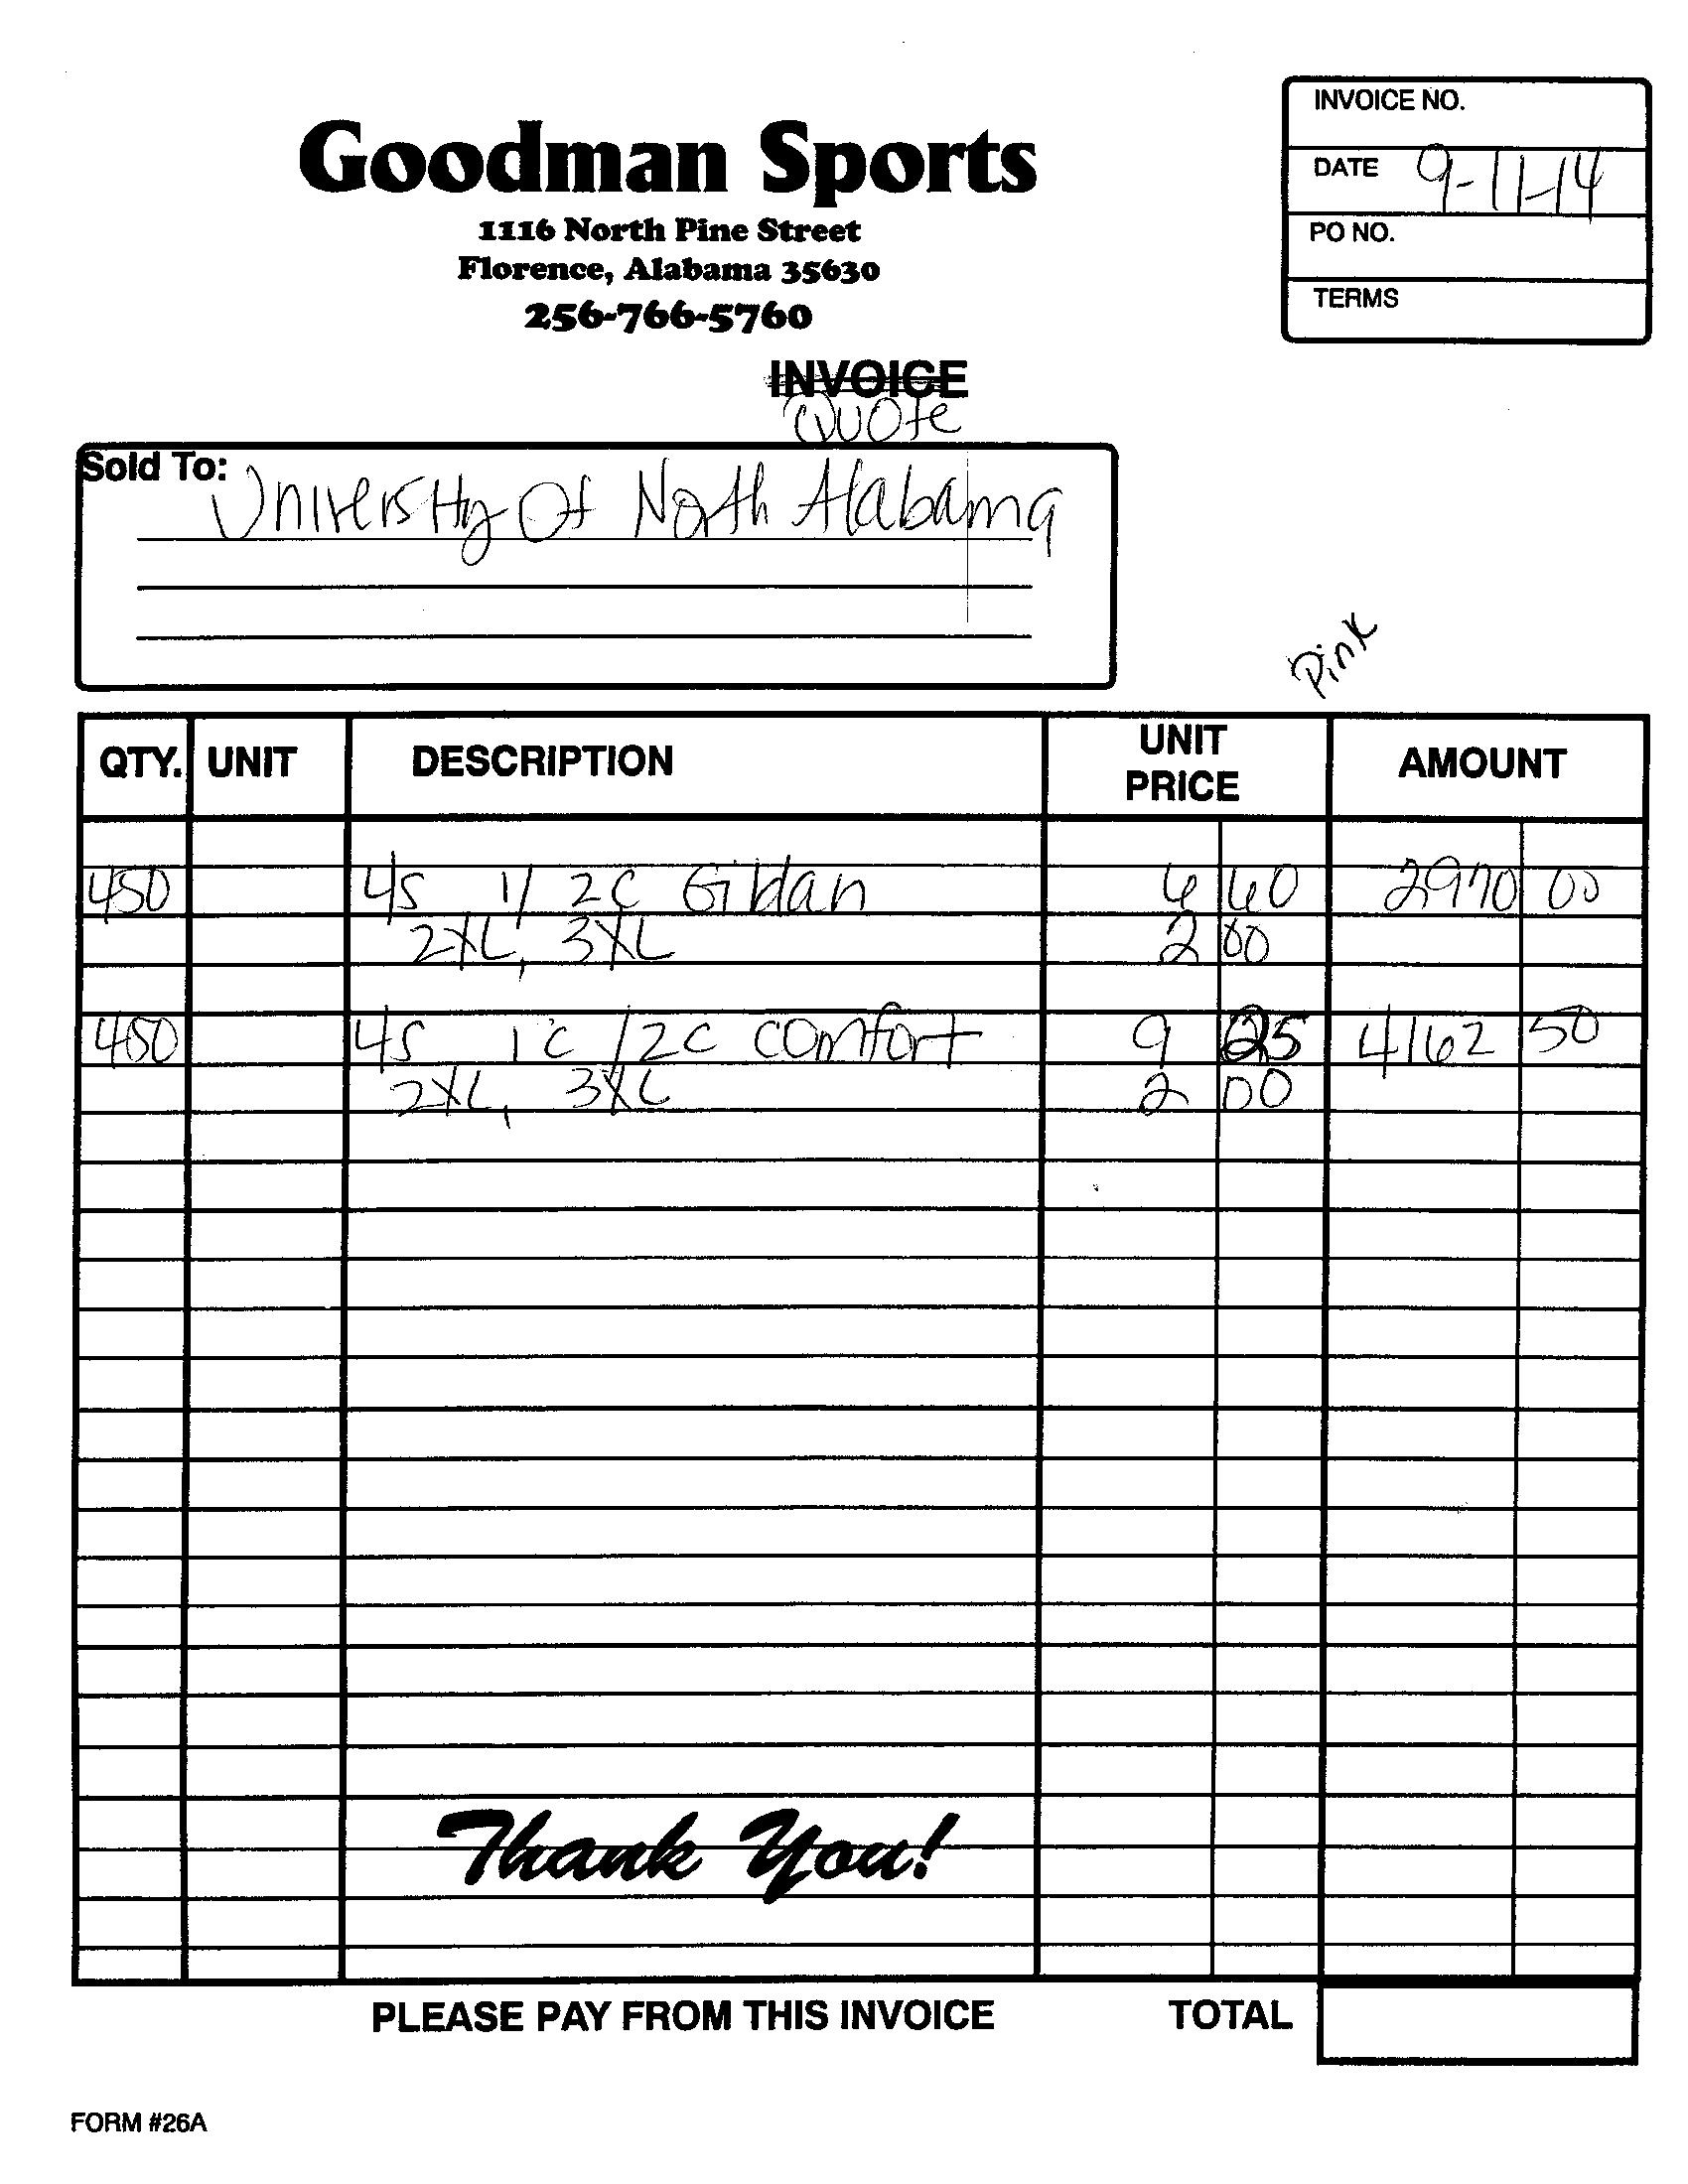 INVOICE NO.
Goodman Sports
DATE 9-11-14
1116 North Pine Street
PO NO.
Florence, Alabama 35630
TERMS
256-766-5760
INVOICE
Quote
Sold To: University Of North Alabama
Pink
QTY. UNIT DESCRIPTION UNIT PRICE AMOUNT
450 4s 1/ 2c Gildan 6 60 2970 00
2XL, 3XL 2 00
450 4s 1c /2c comfort 9 25 4162 50
2XL, 3XL 2 00
Thank You!
PLEASE PAY FROM THIS INVOICE TOTAL
FORM #26A